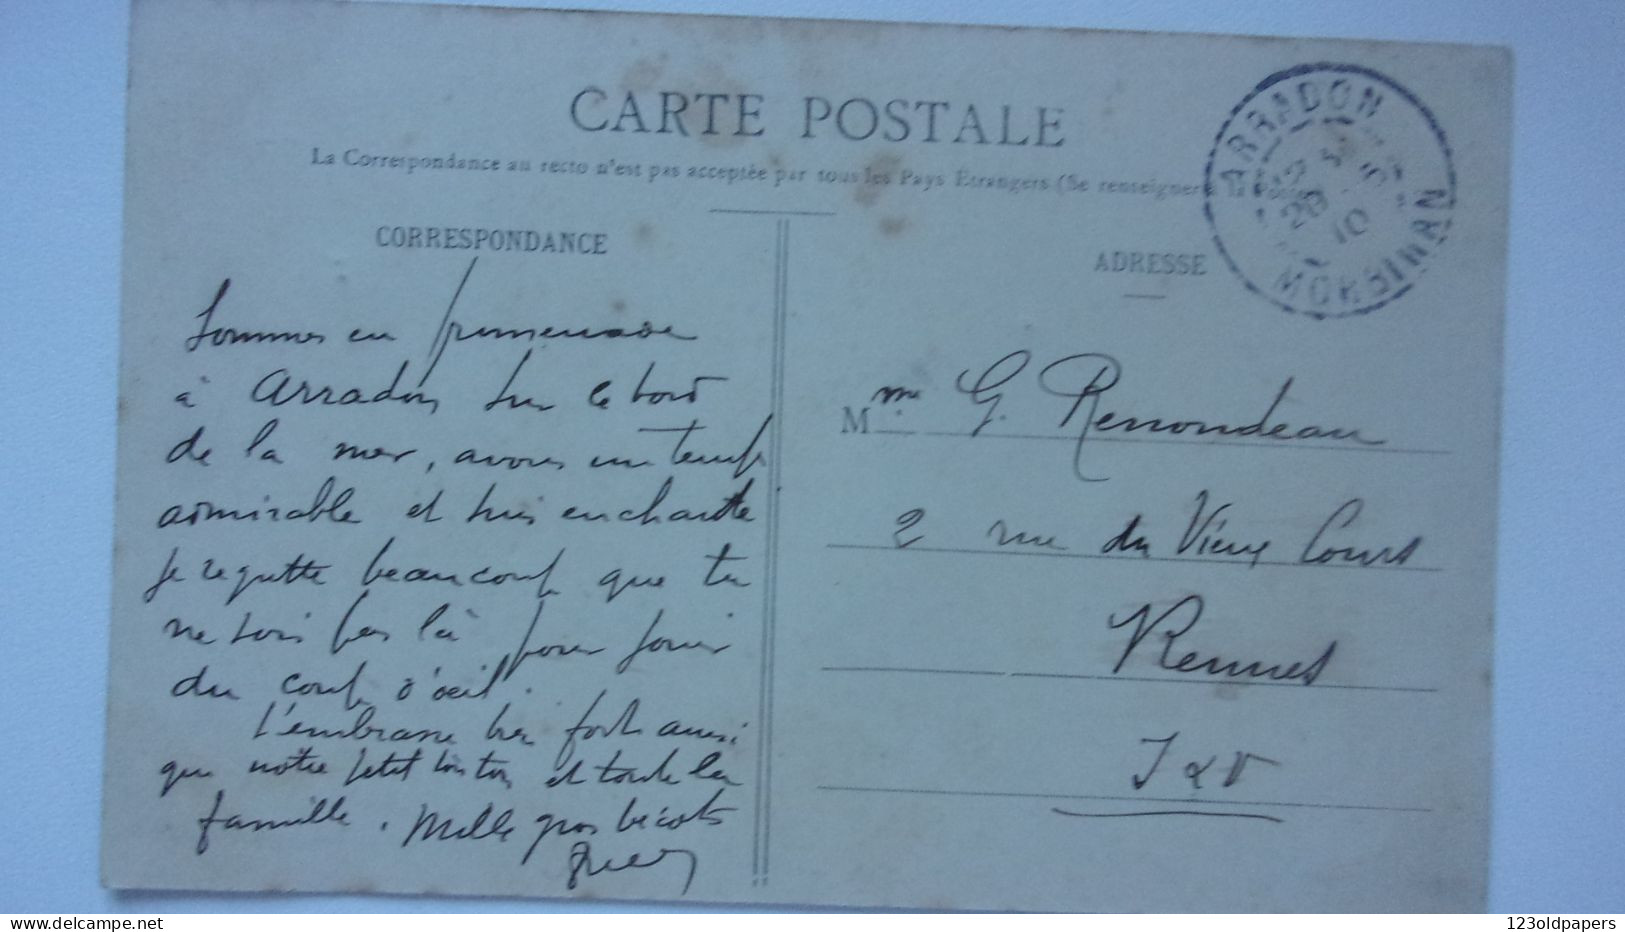 CARTE POSTALE
La Correspondance au recto n'est pas acceptée par tous les Pays Etrangers (Se renseigner à la Poste)
ARRADON
28
10
MORBIHAN
CORRESPONDANCE
Sommes en promenade
à Arradon sur le bord
de la mer, avons un temps
admirable et suis enchantée
je regrette beaucoup que tu
ne sois pas là pour jouir
du coup d'oeil.
T'embrasse bien fort ainsi
que notre petit tonton et toute la
famille. Mille gros bécots
ADRESSE
Mme G. Renondeau
2 rue du Vieux Cours
Rennes
I & V
123oldpapers